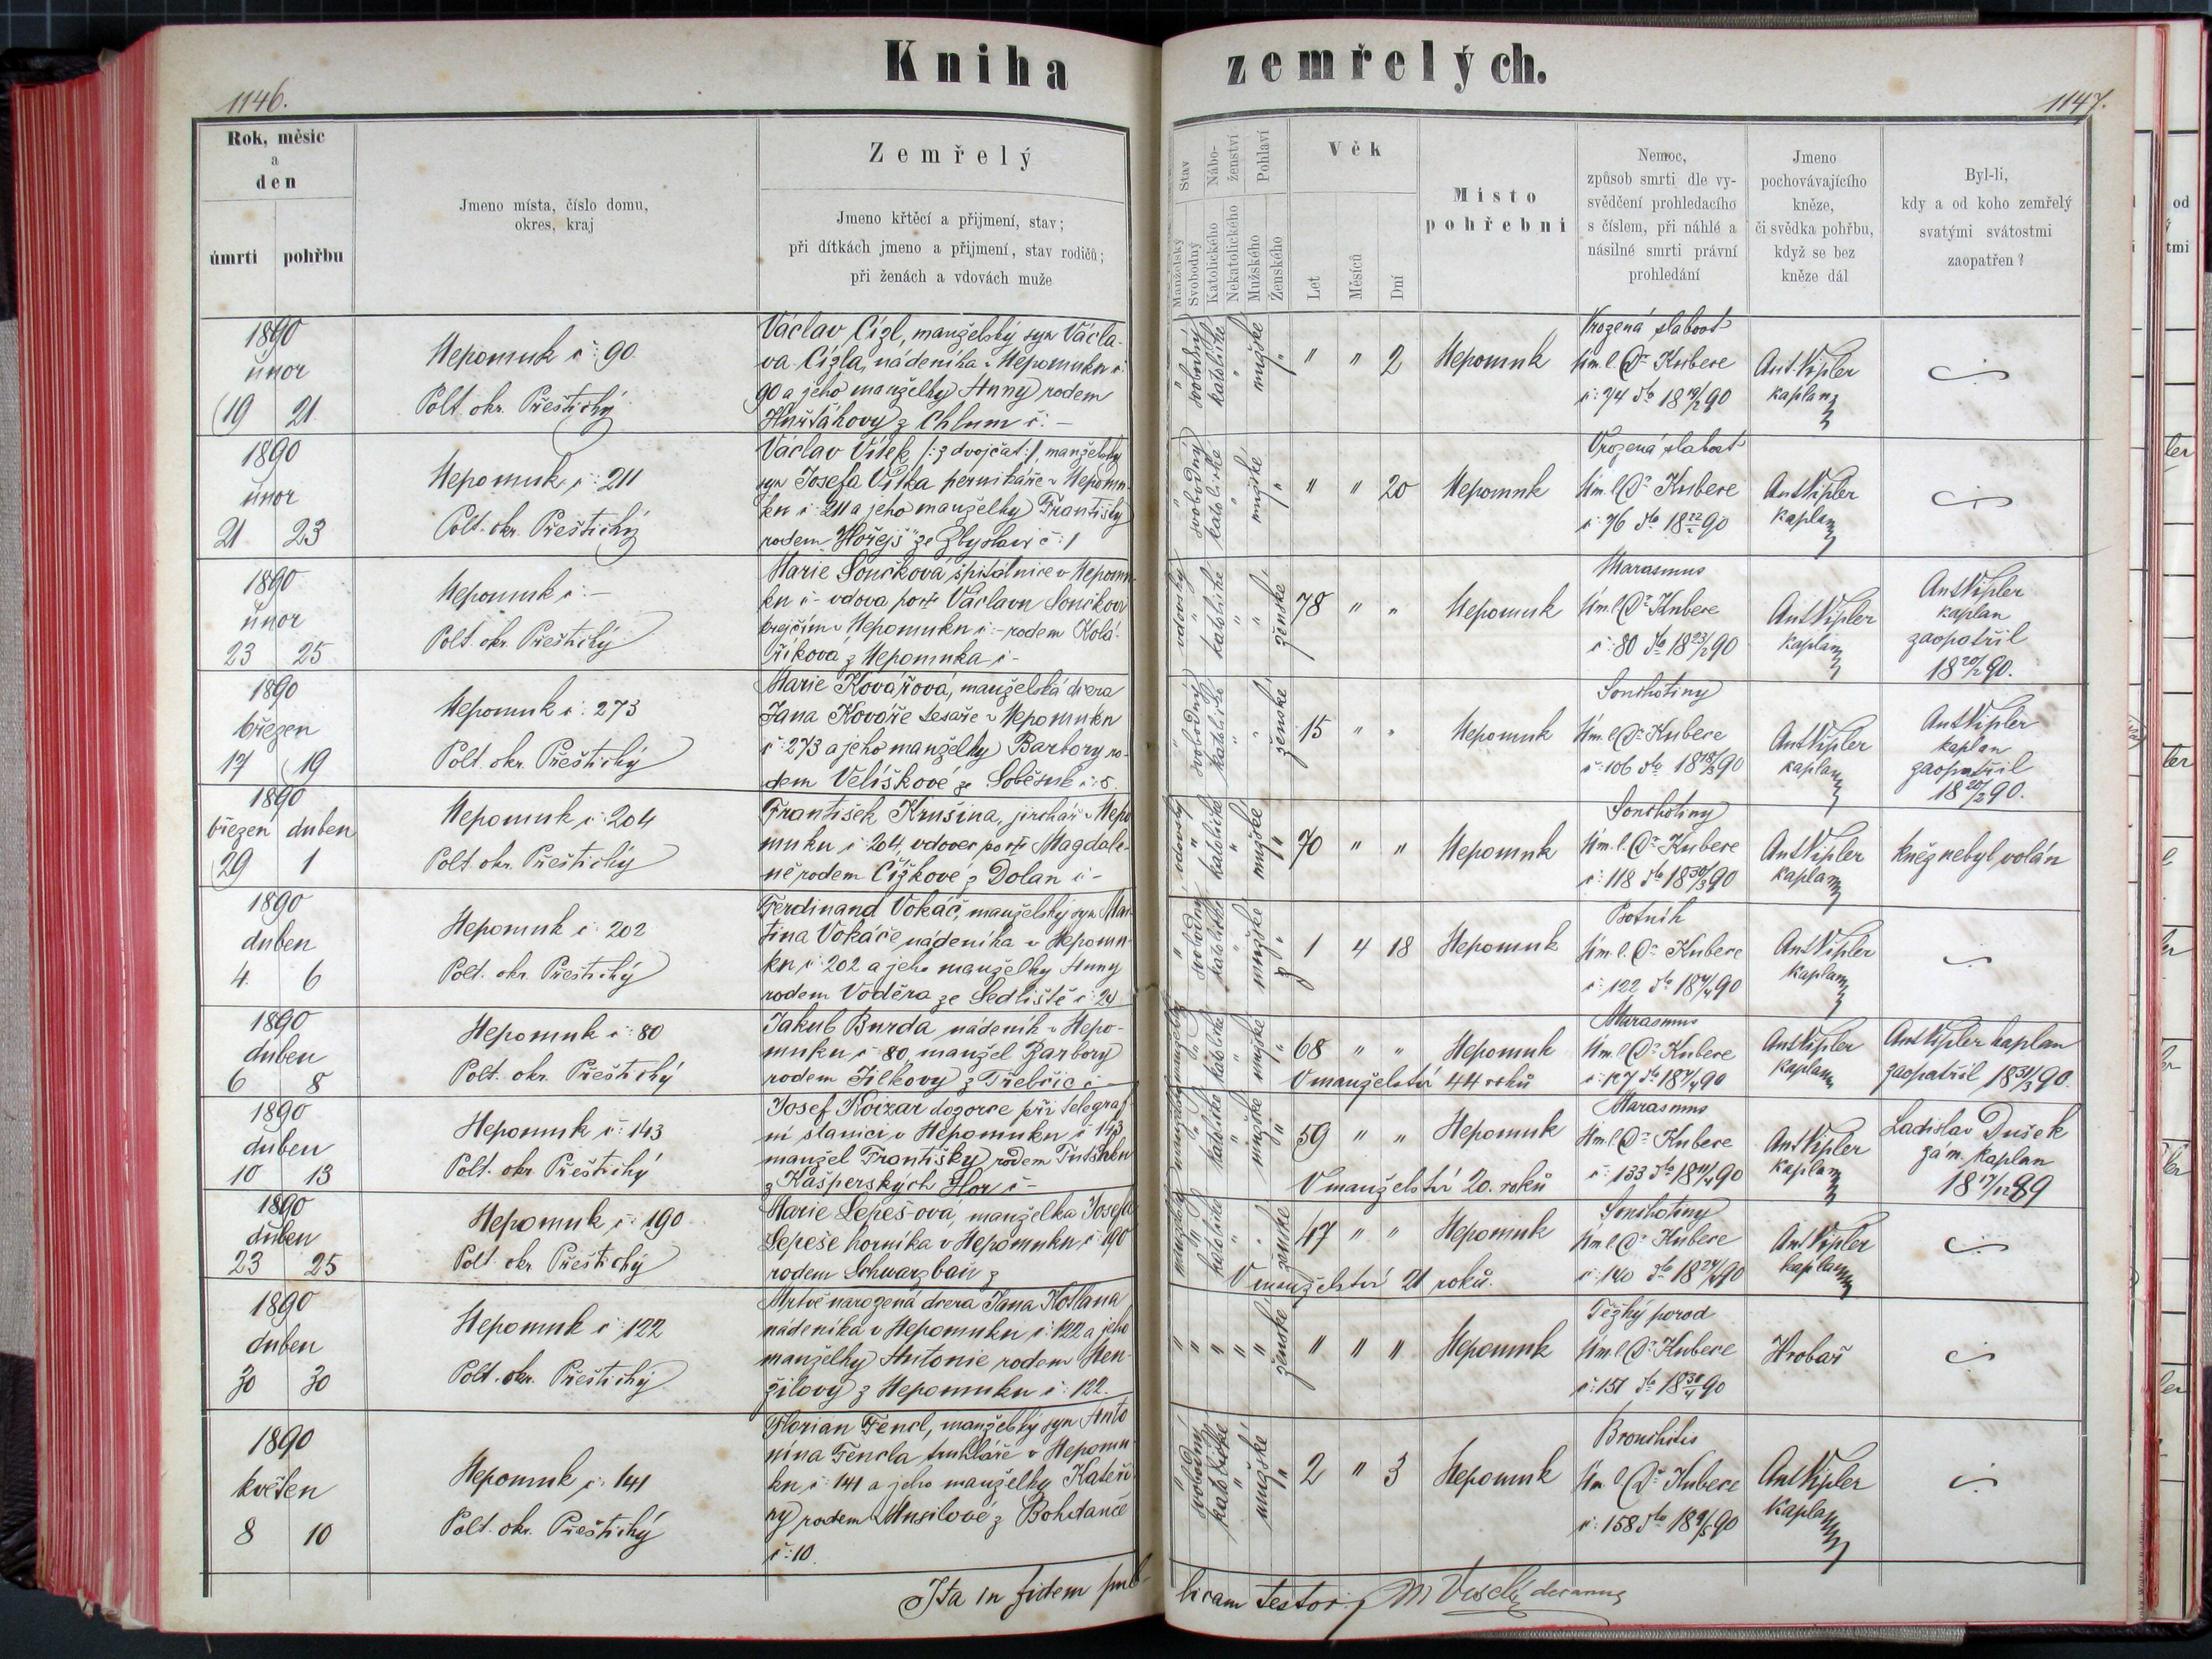 Kniha zemřelých.
1146.
1147.
Rok, měsíc
a
den
úmrtí pohřbu
Jmeno místa, číslo domu,
okres, kraj
Zemřelý
Jmeno křtěcí a přijmení, stav;
při dítkách jmeno a přijmení, stav rodičů;
při ženách a vdovách muže
Stav
Manželský
Svobodný
Nábo-
ženství
Katolického
Nekatolického
Pohlaví
Mužského
Ženského
Věk
Let
Měsíců
Dní
Místo
pohřební
Nemoc,
způsob smrti dle vy-
svědčení prohledacího
s číslem, při náhlé a
násilné smrti právní
prohledání
Jmeno
pochovávajícího
kněze,
či svědka pohřbu,
když se bez
kněze dál
Byl-li,
kdy a od koho zemřelý
svatými svátostmi
zaopatřen?
1890
únor
19 21
Nepomuk č: 90
Polt. okr. Přeštický
Václav Cízl, manželský syn Václa-
va Cízla, nádeníka v Nepomuku č:
90 a jeho manželky Anny rodem
z Chlum č: -
" svobodný katolické " mužské "
" " 2
Nepomuk
Vrozená slabost
Um. l. Dr Kubece
č: 74 dto 18 19/2 90
Ant Vipler
kaplan
1890
únor
21 23
Nepomuk č: 211
Polt. okr. Přeštický
Václav Vítek /: z dvojčat :/, manželský
syn Josefa Vítka perníkáře v Nepomu-
ku č: 211 a jeho manželky Františky
rodem Hořejš ze Zbyslav č: 1
" svobodný katolické " mužské "
" " 20
Nepomuk
Vrozená slabost
Um. l. Dr Kubece
č: 76 dto 18 22/2 90
Ant Vipler
kaplan
1890
únor
23 25
Nepomuk č: -
Polt. okr. Přeštický
Marie Součková špitálnice v Nepomu-
ku č - vdova po † Václavu Součkovi
krejčím v Nepomuku č: - rodem Kolá-
říkova z Nepomuka č -
vdovský " katolické " " ženské
78 " "
Nepomuk
Marasmus
Um. l. Dr Kubece
č: 80 dto 18 23/2 90
Ant Vipler
kaplan
Ant Vipler
kaplan
zaopatřil
18 20/2 90.
1890
březen
17 19
Nepomuk č: 273
Polt. okr. Přeštický
Marie Kovářová, manželská dcera
Jana Kováře tesaře v Nepomuku
č: 273 a jeho manželky Barbory ro-
dem Velíškové ze Soběsuk č: 5
" svobodný katolické " " ženské
15 " "
Nepomuk
Souchotiny
Um. l. Dr Kubece
č: 106 dto 18 18/3 90
Ant Vipler
kaplan
Ant Vipler
kaplan
zaopatřil
18 20/2 90.
1890
březen duben
29 1
Nepomuk č: 204
Polt. okr. Přeštický
František Krušina, jirchář v Nepo
muku č: 204, vdovec po † Magdale-
ně rodem Čížkové z Dolan č -
vdovský " katolické " mužské "
70 " "
Nepomuk
Souchotiny
Um. l. Dr Kubece
č: 118 dto 18 30/3 90
Ant Vipler
kaplan
kněz nebyl volán
1890
duben
4 6
Nepomuk č: 202
Polt. okr. Přeštický
Ferdinand Vokáč, manželský syn Mar-
tina Vokáče nádeníka v Nepomu-
ku č: 202 a jeho manželky Anny
rodem Voděra ze Sedliště č: 24
" svobodný katolické " mužské "
1 4 18
Nepomuk
Psotník
Um. l. Dr Kubece
č: 122 dto 18 4/4 90
Ant Vipler
kaplan
1890
duben
6 8
Nepomuk č: 80
Polt. okr. Přeštický
Jakub Burda nádeník v Nepo-
muku č 80, manžel Barbory
rodem Jílkovy z Třebčic č -
manželský " katolické " mužské "
68 " "
V manželství 44 roků
Nepomuk
Marasmus
Um. l. Dr Kubece
č: 127 dto 18 7/4 90
Ant Vipler
kaplan
Ant Vipler kaplan
zaopatřil 18 31/3 90.
1890
duben
10 13
Nepomuk č: 143
Polt. okr. Přeštický
Josef dozorce při telegraf-
ní stanici v Nepomuku č: 143
manžel Františky rodem
z Kašperských Hor č -
manželský " katolické " mužské "
59 " "
V manželství 20. roků
Nepomuk
Marasmus
Um. l. Dr Kubece
č: 133 dto 18 11/4 90
Ant Vipler
kaplan
Ladislav Dušek
zám. kaplan
18 17/12 89
1890
duben
23 25
Nepomuk č: 190
Polt. okr. Přeštický
Marie Lepešova, manželka Josefa
Lepeše horníka v Nepomuku č: 190
rodem z
manželský " katolické " " ženské
47 " "
V manželství 21 roků.
Nepomuk
Souchotiny
Um. l. Dr Kubece
č: 140 dto 18 24/4 90
Ant Vipler
kaplan
1890
duben
30 30
Nepomuk č: 122
Polt. okr. Přeštický
Mrtvě narozená dcera Jana Kotlana
nádeníka v Nepomuku č: 122 a jeho
manželky Antonie rodem Men-
žilovy z Nepomuku č: 122.
" " " " " ženské
" " "
Nepomuk
Těžký porod
Um. l. Dr Kubece
č: 151 dto 18 30/4 90
Hrobař
1890
květen
8 10
Nepomuk č: 141
Polt. okr. Přeštický
Florian Fencl, manželský syn Anto
nína Fencla truhláře v Nepomu-
ku č: 141 a jeho manželky Kateři
ny rodem Musilové z Bohdanče
č: 10.
" svobodný katolické " mužské "
2 " 3
Nepomuk
Bronchitis
Um. l. Dr Kubece
č: 158 dto 18 9/5 90
Ant Vipler
kaplan
Ita in fidem pub-
licam testor; M Veselý decanus